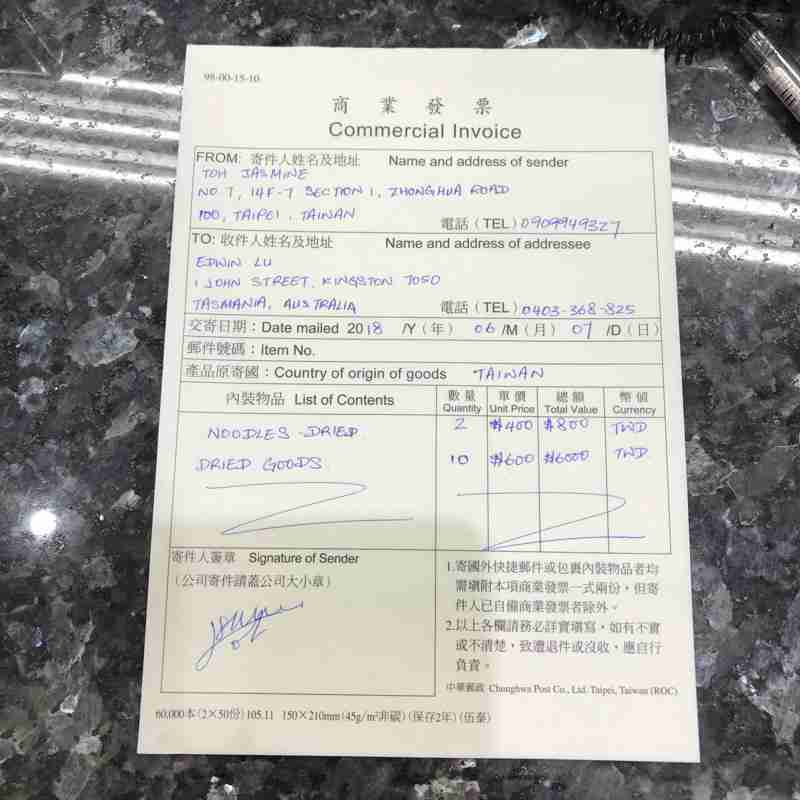 98-00-15-10
商業發票
Commercial Invoice
FROM: 寄件人姓名及地址 Name and address of sender
TOH JASMINE
NO 7, 14F-7 SECTION 1, ZHONGHUA ROAD
100, TAIPEI, TAIWAN
電話(TEL) 0909949327
TO: 收件人姓名及地址 Name and address of addressee
EDWIN LU
1 JOHN STREET, KINGSTON 7050
TASMANIA, AUSTRALIA
電話(TEL) 0403-368-825
交寄日期:Date mailed 2018 /Y(年) 06 /M(月) 07 /D(日)
郵件號碼:Item No.
產品原寄國:Country of origin of goods TAIWAN
內裝物品 List of Contents 數量 Quantity 單價 Unit Price 總額 Total Value 幣值 Currency
NOODLES - DRIED 2 $400 $800 TWD
DRIED GOODS 10 $600 $6000 TWD
寄件人簽章 Signature of Sender
(公司寄件請蓋公司大小章)
1.寄國外快捷郵件或包裹內裝物品者均
需填附本項商業發票一式兩份,但寄
件人已自備商業發票者除外。
2.以上各欄請務必詳實填寫,如有不實
或不清楚,致遭退件或沒收,應自行
負責。
中華郵政 Chunghwa Post Co., Ltd. Taipei, Taiwan (ROC)
60,000本(2×50份)105.11 150×210mm(45g/m²非碳)(保存2年)(伍泰)